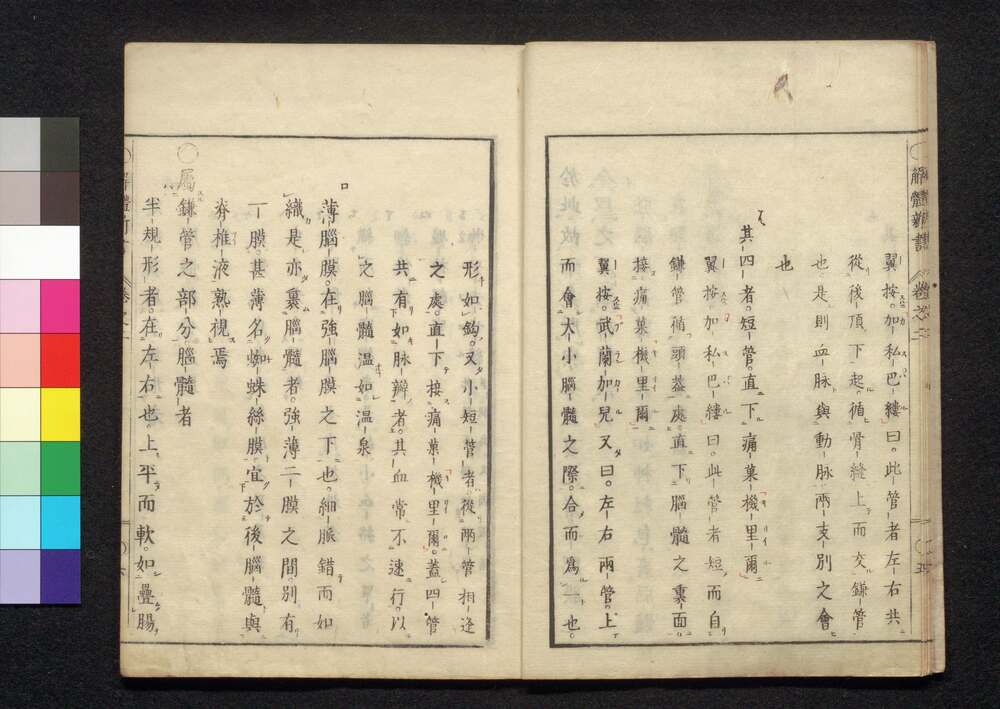 翼按。加私巴縷曰。此管者左右共
從後頂下起。循骨縫上而交鎌管
也是則血脉與動脉兩支別之會
也
其四者。短管。直下痛菓機里爾
翼按加私巴縷曰。此管者短而自
鎌管循頭蓋處。直下腦髓之裏面
接痛菓機里爾
翼按。武蘭加兒又曰。左右兩管。上
而會大小腦髓之際。合而爲一也。
形如鈎。又小短管者。從兩管相逢
之處。直下接痛菓機里爾。蓋四管
共有如脉辮者。其血常不速行。以
之腦髓温如温泉
薄腦膜。在強腦膜之下也。細脈錯而如
織是亦裹腦髓者。強薄二膜之間。別有
一膜。甚薄名蜘蛛絲膜。宜於後腦髓與
脊椎液熟視焉
○屬鎌管之部分腦髓者
半規形者。在左右也。上平而軟。如疊腸